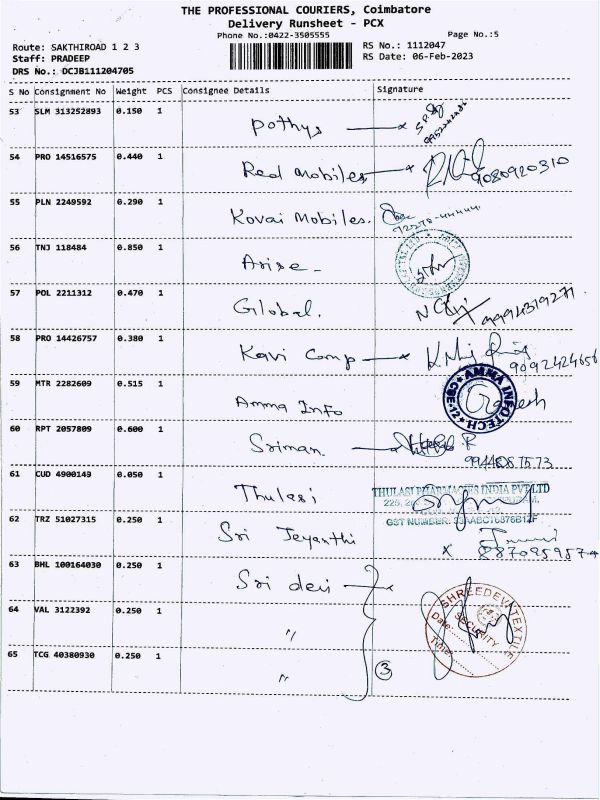 THE PROFESSIONAL COURIERS, Coimbatore
Delivery Runsheet - PCX
Phone No.:0422-3505555 Page No.:5
Route: SAKTHIROAD 1 2 3 RS No.: 1112047
Staff: PRADEEP RS Date: 06-Feb-2023
DRS No.: DCJB111204705
S No Consignment No Weight PCS Consignee Details Signature
53 SLM 313252893 0.150 1 Pothys
54 PRO 14516575 0.440 1 Red Mobiles 9080920310
55 PLN 2249592 0.290 1 Kovai Mobiles.
56 TNJ 118484 0.850 1 Arise
57 POL 2211312 0.470 1 Global.
58 PRO 14426757 0.380 1 Kavi Comp 9092424656
59 MTR 2282609 0.515 1 Amma Info AMMA INFOTECH CBE-12 Ganesh
60 RPT 2057809 0.600 1 Sriman
61 CUD 4900149 0.050 1 Thulasi THULASI PHARMACIES INDIA PVT LTD
GST NUMBER:
62 TRZ 51027315 0.250 1 Sri Jeyanthi
63 BHL 100164030 0.250 1 Sri devi
64 VAL 3122392 0.250 1 〃 SHREEDEVI TEXTILE SECURITY Date: Time:
65 TCG 40380930 0.250 1 〃 3